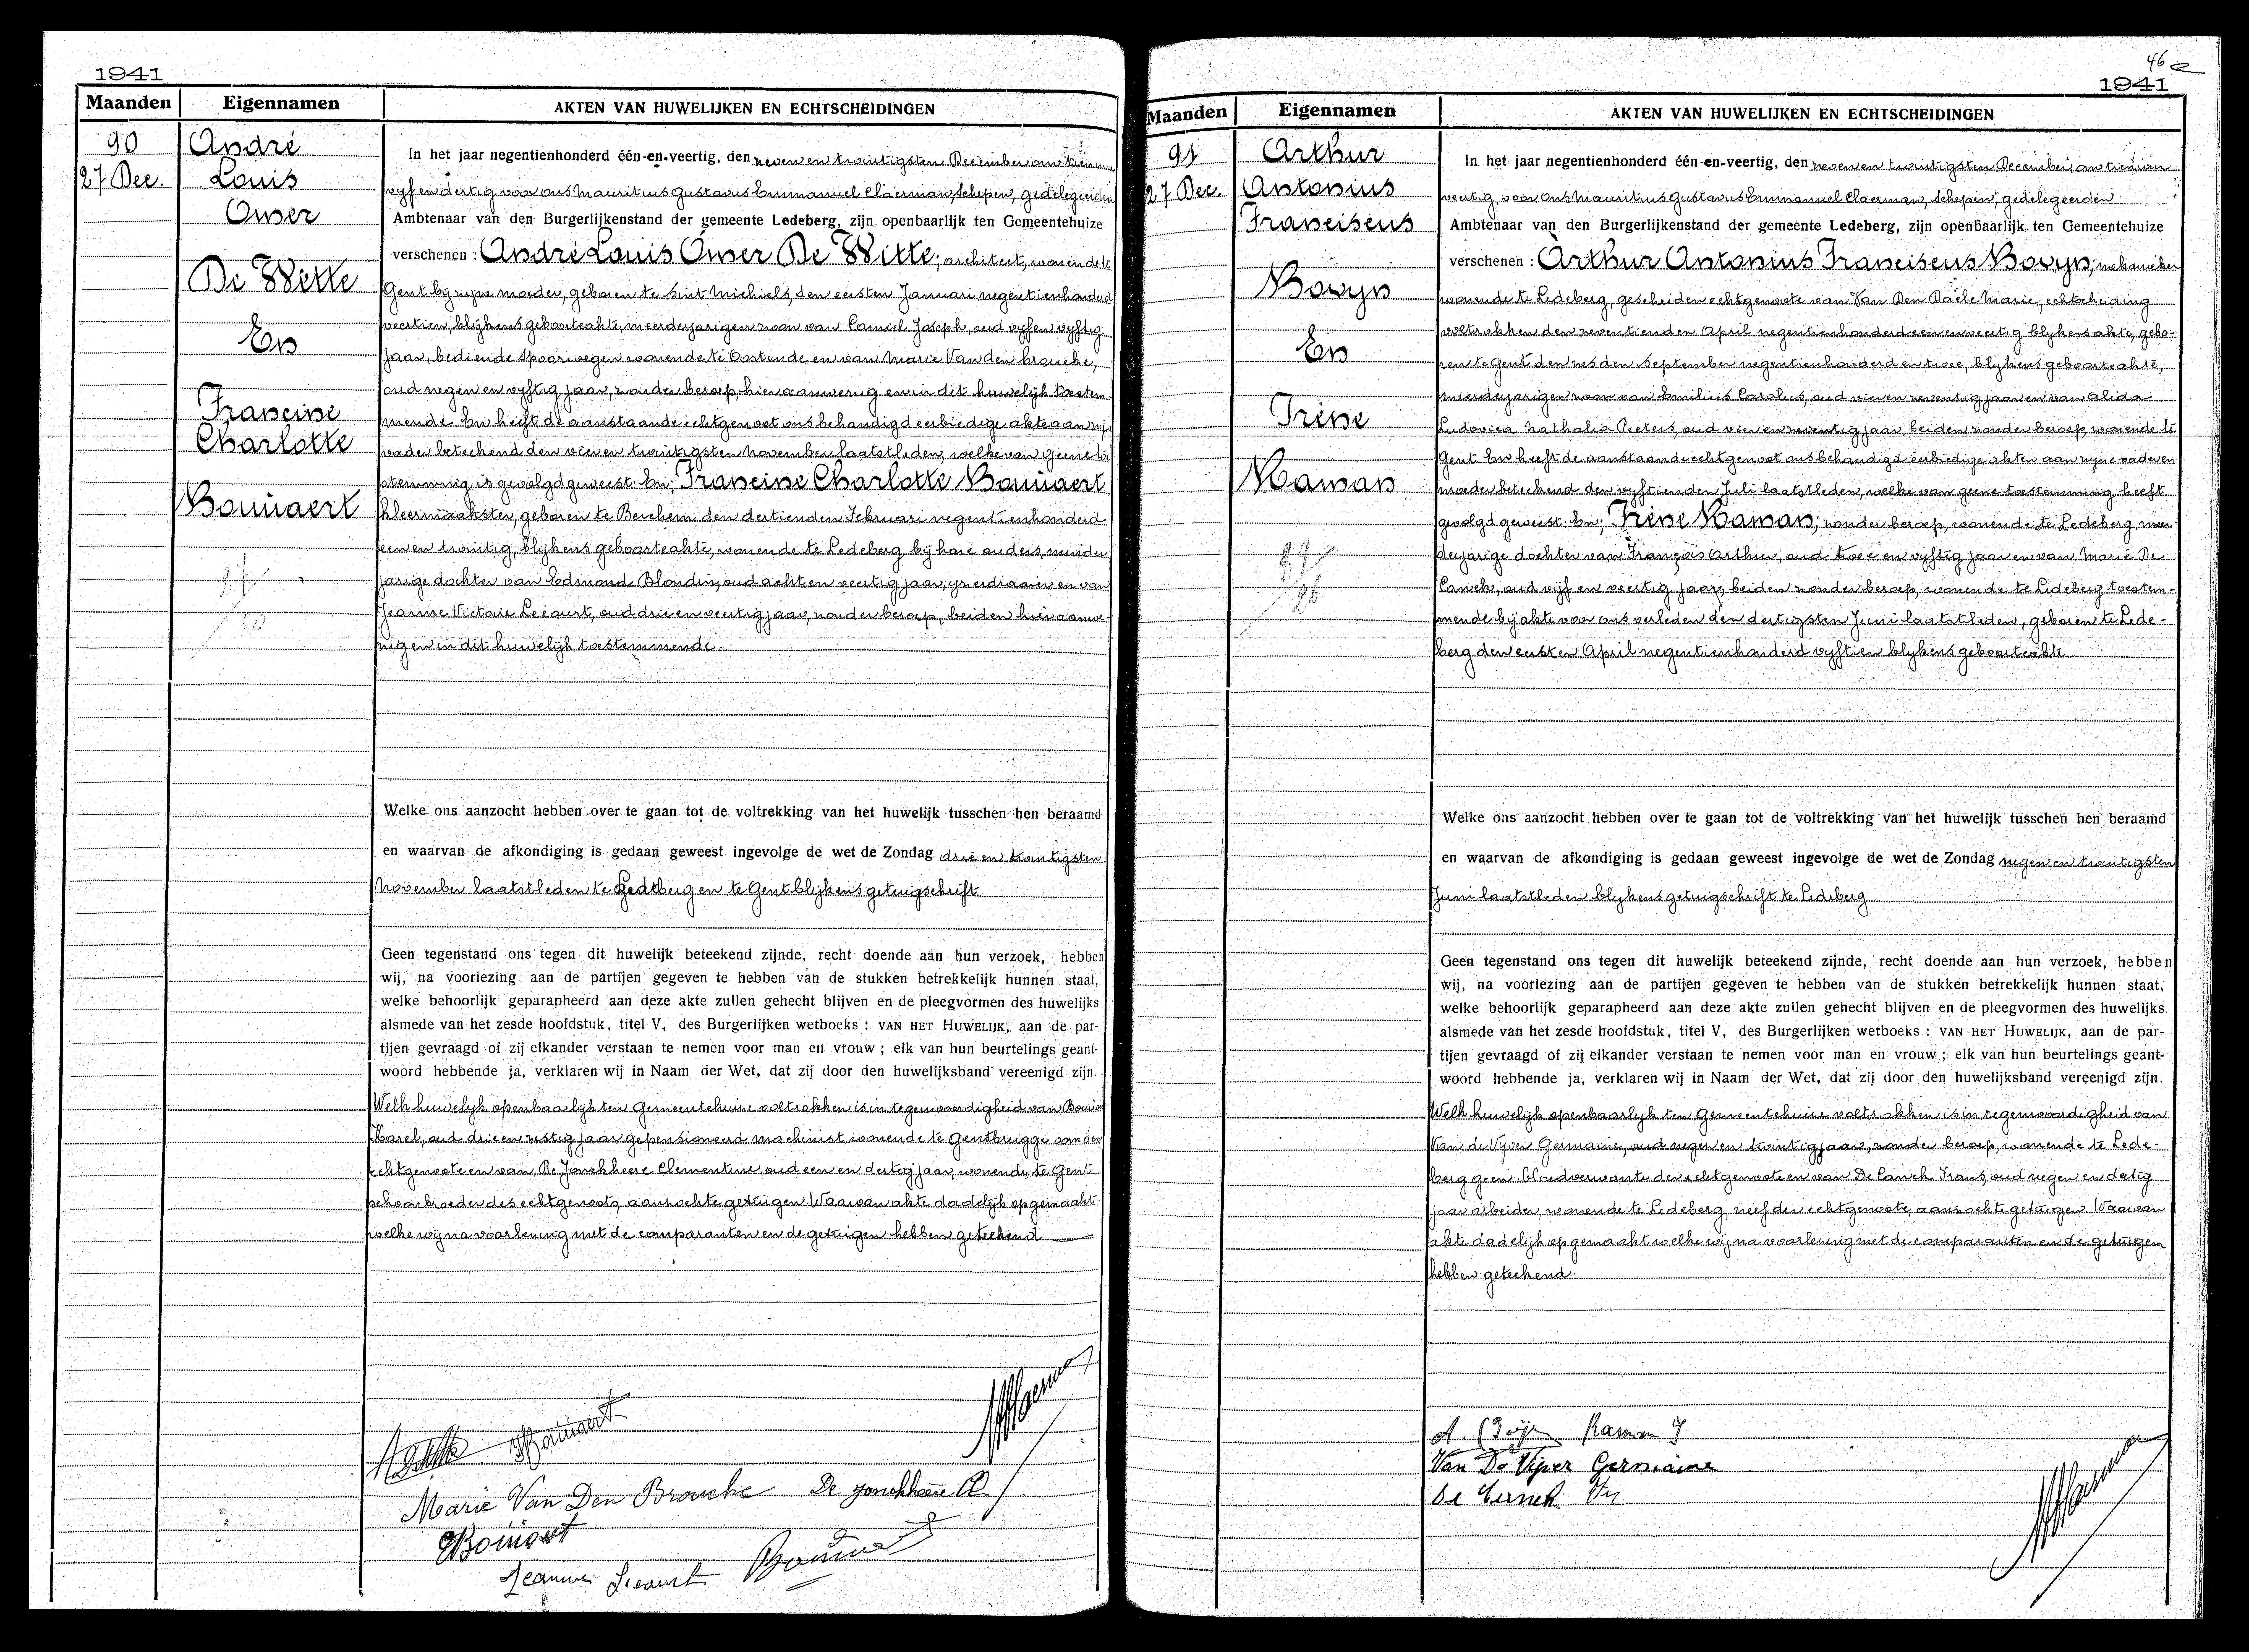 1941
Maanden Eigennamen AKTEN VAN HUWELIJKEN EN ECHTSCHEIDINGEN
90
27 Dec.
André
Louis
Omer
De Witte
En
Francine
Charlotte
Bouüaert
In het jaar negentienhonderd één-en-veertig, den zeven en twintigsten December om tien uur
vyf en dertig voor ons Mauritius Gustavus Emmanuel Claerman, Schepen, gedelegeerden
Ambtenaar van den Burgerlijkenstand der gemeente Ledeberg, zijn openbaarlijk ten Gemeentehuize
verschenen : André Louis Omer De Witte; architect, wonende te
Gent by zyne moeder, geboren te Sint Michiels, den eersten Januari negentienhonderd
veertien, blijkens geboorteakte, meerderjarigen zoon van Camiel Joseph, oud vyf en vyftig
jaar, bediende spoorwegen wonende te Oostende en van Marie Van den brouche,
oud negen en vyftig jaar, zonder beroep, hier aanwezig en in dit huwelijk toestem-
mende. En heeft de aanstaande echtgenoot ons behandigd eerbiedige akte aan zijn
vader beteekend den vier en twintigsten November laatstleden, welke van geene toe
stemming is gevolgd geweest. En; Francine Charlotte Bouüaert
kleermaakster, geboren te Berchem den dertienden Februari negentienhonderd
een en twintig, blijkens geboorteakte, wonende te Ledeberg bij hare ouders, minder
jarige dochter van Edmond Blondin, oud acht en veertig jaar, yzerdraaier en van
Jeanne Victorie Lecourt, oud drie en veertig jaar, zonder beroep, beiden hier aanwe-
zig en in dit huwelijk toestemmende.
Welke ons aanzocht hebben over te gaan tot de voltrekking van het huwelijk tusschen hen beraamd
en waarvan de afkondiging is gedaan geweest ingevolge de wet de Zondag drie en twintigsten
November laatstleden te Ledeberg en te Gent blijkens getuigschrift
Geen tegenstand ons tegen dit huwelijk beteekend zijnde, recht doende aan hun verzoek, hebben
wij, na voorlezing aan de partijen gegeven te hebben van de stukken betrekkelijk hunnen staat,
welke behoorlijk geparapheerd aan deze akte zullen gehecht blijven en de pleegvormen des huwelijks
alsmede van het zesde hoofdstuk, titel V, des Burgerlijken wetboeks : VAN HET HUWELIJK, aan de par-
tijen gevraagd of zij elkander verstaan te nemen voor man en vrouw ; elk van hun beurtelings geant-
woord hebbende ja, verklaren wij in Naam der Wet, dat zij door den huwelijksband vereenigd zijn.
Welk huwelijk openbaarlijk ten Gemeentehuize voltrokken is in tegenwoordigheid van Bouüaert
Karel, oud drie en zestig jaar gepensioneerd machinist wonende te Gentbrugge van der
echtgenoote en van De Jonckheere Clementine, oud een en dertig jaar, wonende te Gent
schoonbroeder des echtgenoots, aanzochte getuigen. Waarvan akte dadelijk opgemaakt
welke wij na voorlezing met de comparanten en de getuigen hebben geteekend
Bouüaert
Marie Van Den Brouche De jonckheere C
Bouüaert
Jeanne Lecourt
46
1941
Maanden Eigennamen AKTEN VAN HUWELIJKEN EN ECHTSCHEIDINGEN
91
27 Dec.
Arthur
Antonius
Franciscus
Bovyn
En
Irène
Raman
In het jaar negentienhonderd één-en-veertig, den zeven en twintigsten December, om tien uur
veertig voor ons Mauritius Gustavus Emmanuel Claerman, Schepen, gedelegeerden
Ambtenaar van den Burgerlijkenstand der gemeente Ledeberg, zijn openbaarlijk ten Gemeentehuize
verschenen : Arthur Antonius Franciscus Bovyn; mekanieker
wonende te Ledeberg, gescheiden echtgenoote van Van Den Daele Marie, echtscheiding
voltrokken den zeventienden April negentienhonderd een en veertig blykens akte, gebo-
ren te Gent den zesden September negentienhonderd en twee, blykens geboorteakte,
meerderjarigen zoon van Emilius Carolus, oud vier en zeventig jaar en van Alida
Ludovica Nathalia Peeters, oud vier en zeventig jaar, beiden zonder beroep, wonende te
Gent. En heeft de aanstaande echtgenoot ons behandigd eerbiedige akten aan zyne vader en
moeder beteekend den vyftienden Juli laatstleden, welke van geene toestemming heeft
gevolgd geweest. En; Irène Raman; zonder beroep, wonende te Ledeberg, meer-
derjarige dochter van François Arthur, oud twee en vyftig jaar en van Marie De
Canck, oud vijf en veertig jaar, beiden zonder beroep, wonende te Ledeberg toestem-
mende bij akte voor ons verleden den dertigsten Juni laatstleden, geboren te Lede-
berg den eersten April negentienhonderd vyftien blykens geboorteakte
Welke ons aanzocht hebben over te gaan tot de voltrekking van het huwelijk tusschen hen beraamd
en waarvan de afkondiging is gedaan geweest ingevolge de wet de Zondag negen en twintigsten
Juni laatstleden blykens getuigschrift te Ledeberg
Geen tegenstand ons tegen dit huwelijk beteekend zijnde, recht doende aan hun verzoek, hebben
wij, na voorlezing aan de partijen gegeven te hebben van de stukken betrekkelijk hunnen staat,
welke behoorlijk geparapheerd aan deze akte zullen gehecht blijven en de pleegvormen des huwelijks
alsmede van het zesde hoofdstuk, titel V, des Burgerlijken wetboeks : VAN HET HUWELIJK, aan de par-
tijen gevraagd of zij elkander verstaan te nemen voor man en vrouw ; elk van hun beurtelings geant-
woord hebbende ja, verklaren wij in Naam der Wet, dat zij door den huwelijksband vereenigd zijn.
Welk huwelijk openbaarlyk ten Gemeentehuize voltrokken is in tegenwoordigheid van
Van de Vyver Germaine, oud negen en twintig jaar, zonder beroep, wonende te Lede-
berg geen bloedverwante der echtgenoote en van De Canck Frans, oud negen en dertig
jaar arbeider, wonende te Ledeberg, neef der echtgenoote, aanzochte getuigen. Waarvan
akte dadelijk opgemaakt welke wij na voorlezing met de comparanten en de getuigen
hebben geteekend.
Raman J
Van De Vijver Germaine